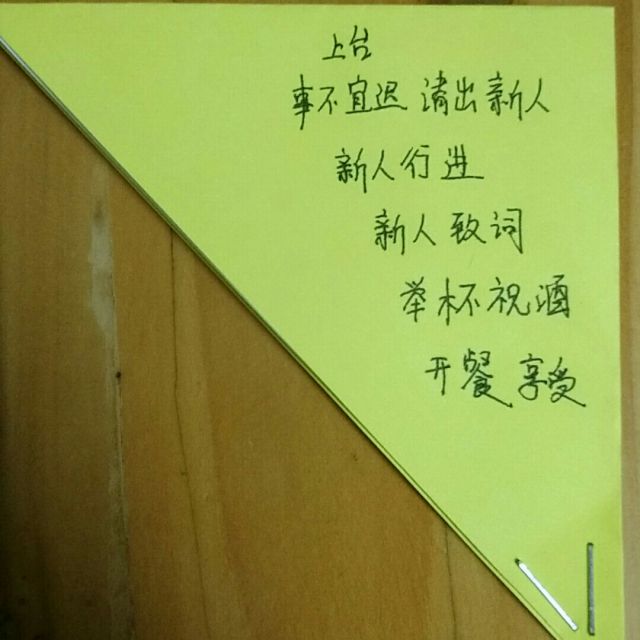 上台
事不宜迟 请出新人
新人行进
新人致词
举杯祝酒
开餐 享受